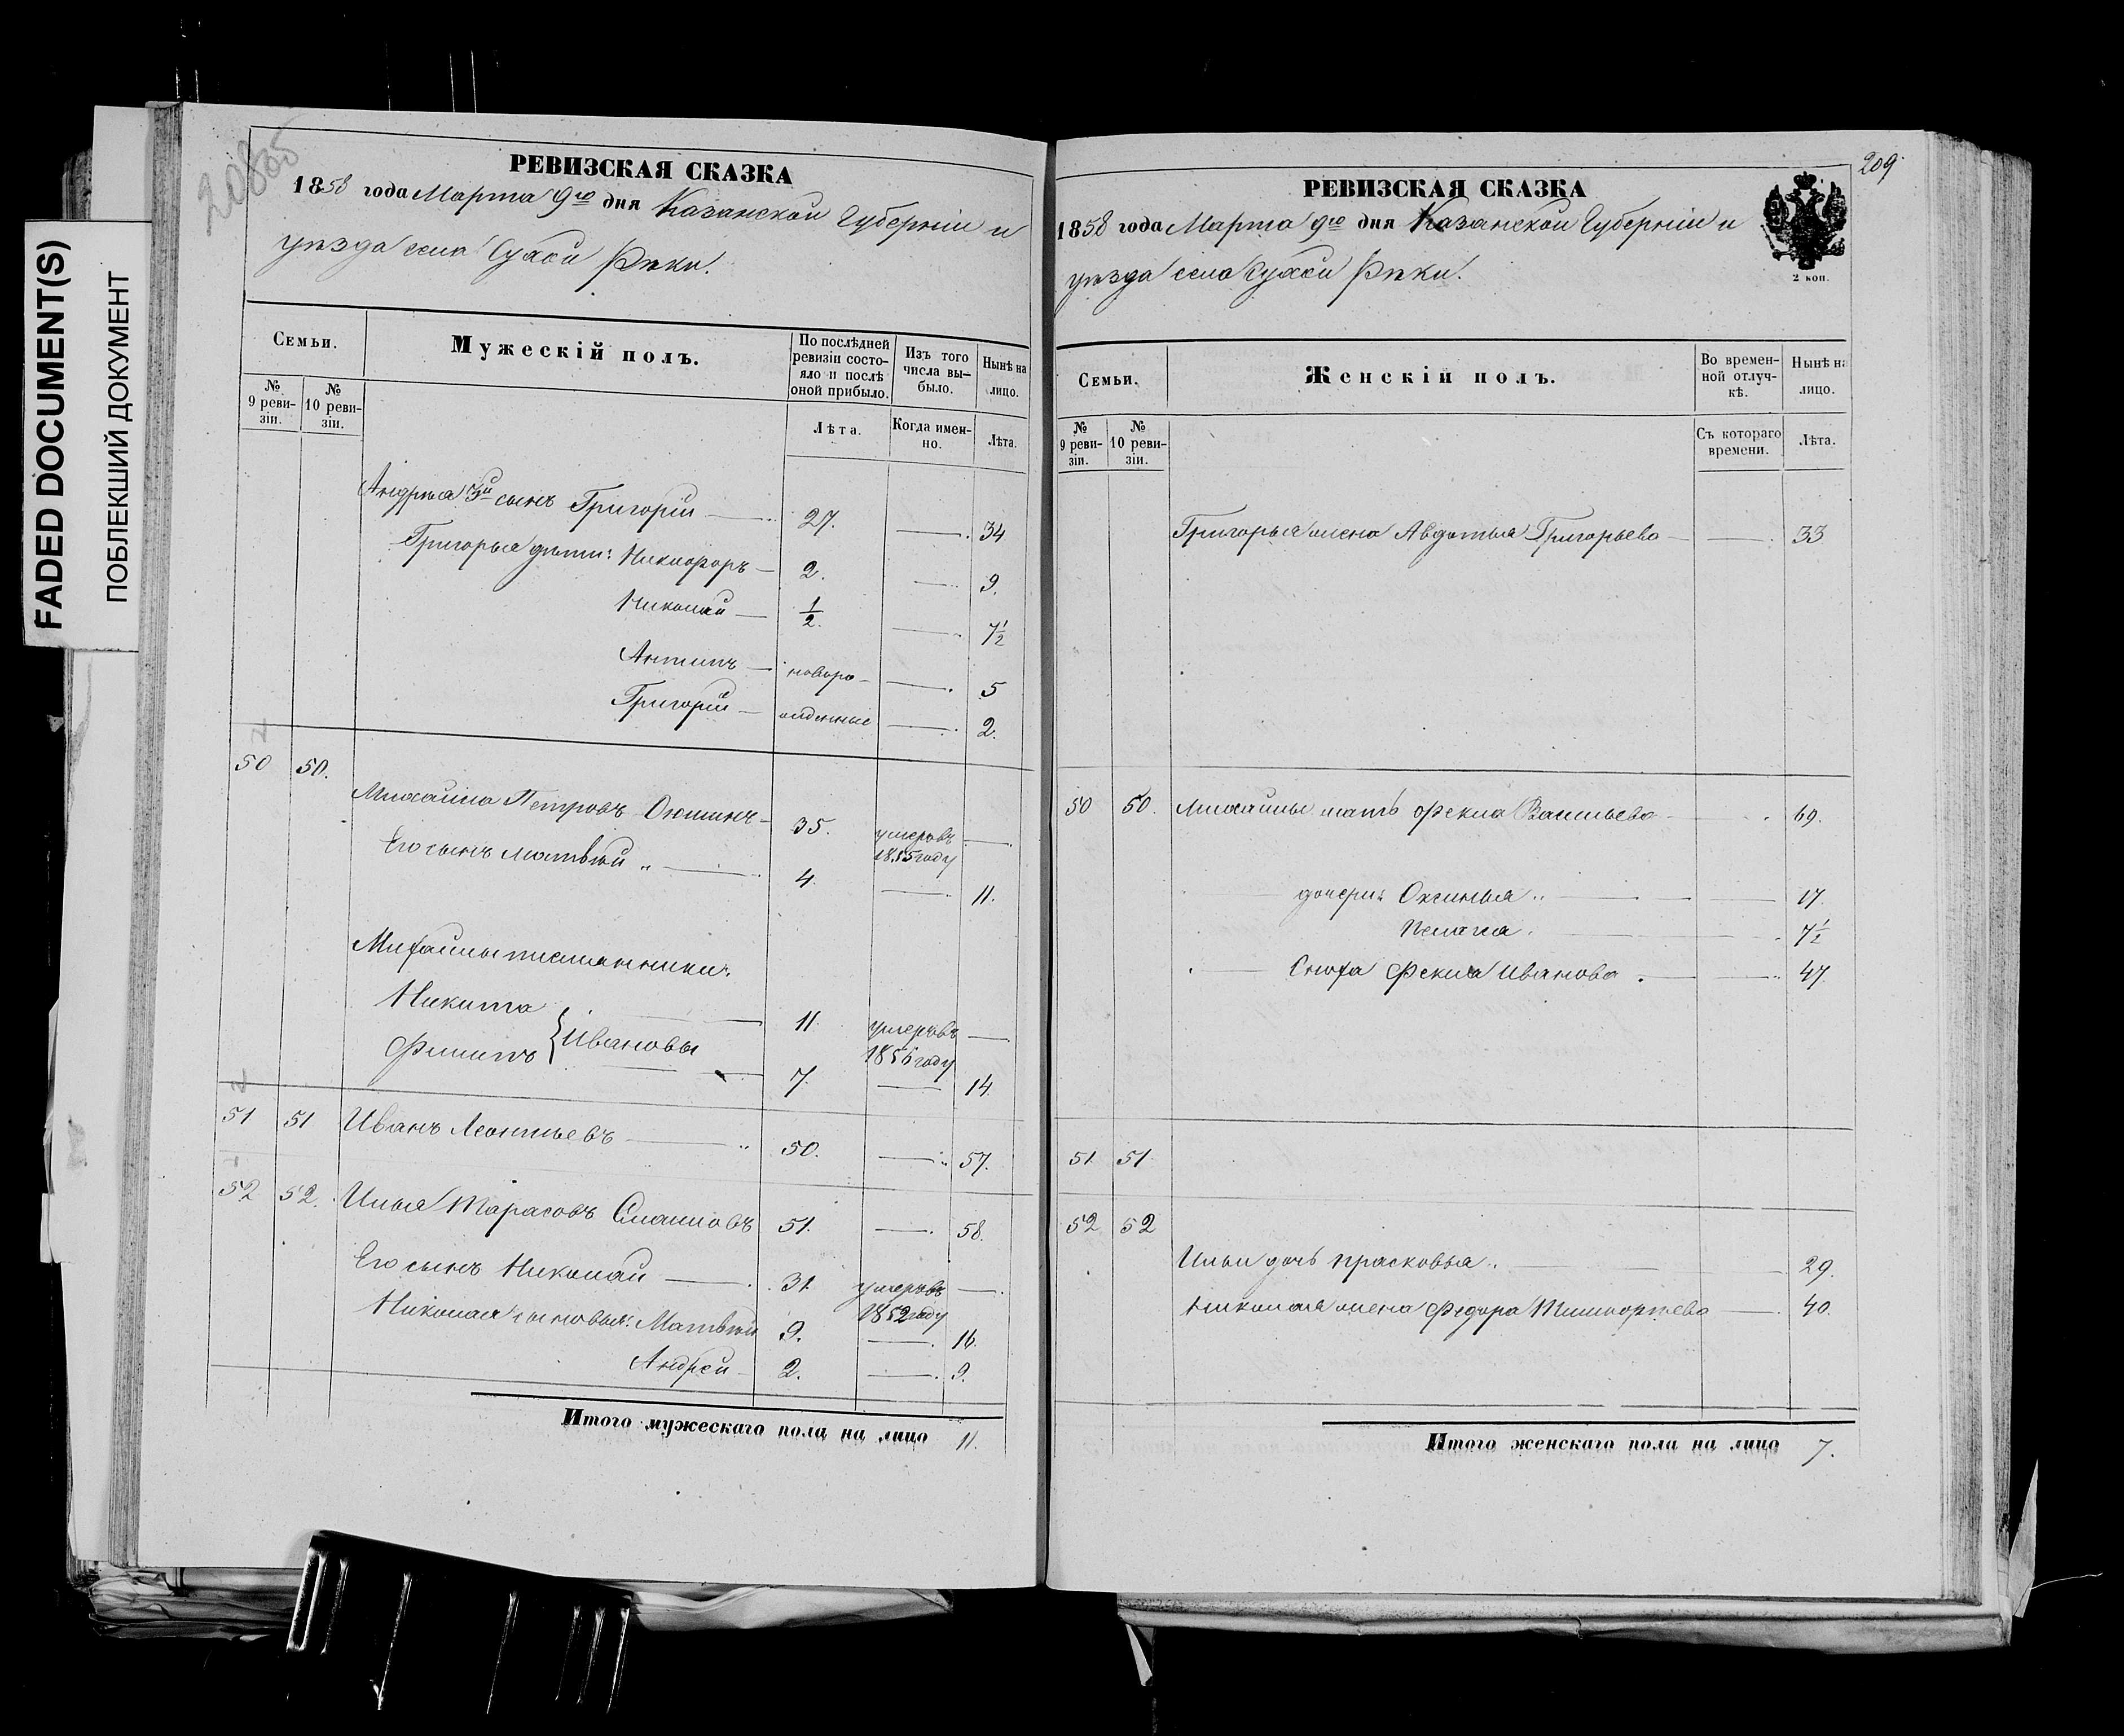 FADED DOCUMENT(S)
ПОБЛЕКШИЙ ДОКУМЕНТ
РЕВИЗСКАЯ СКАЗКА
1858 года Марта 9го дня Казанской Губерніи и
уѣзда села Сухой Рѣки.
Семьи.
Мужескій полъ.
По послѣдней ревизіи состояло и послѣ оной прибыло.
Изъ того числа выбыло.
Нынѣ на лицо.
№ 9 ревизіи.
№ 10 ревизіи.
Лѣта.
Когда именно.
Лѣта.
Андрея 3й сынъ Григорій 27. 34
Григорья дѣти: Никифоръ 2. 9.
Николай 1/2. 7 1/2
Антипъ новоро- 5
Григорій жденные 2.
50 50. Михайла Петровъ 35. умеръ въ 1855 году
Его сынъ Матвѣй 4. 11.
Михайлы племянники:
Никита 11. умеръ въ 1856 году
Филипъ } Ивановы 7. 14.
51 51 Иванъ Леонтьевъ 50. 57.
52 52. Илья Тарасовъ 51. 58.
Его сынъ Николай 31. умеръ въ 1852 году
Николая сыновья: Матвѣй 9. 16.
Андрей 2. 9.
Итого мужескаго пола на лицо 11.
209
РЕВИЗСКАЯ СКАЗКА
1858 года Марта 9го дня Казанской Губерніи и
уѣзда села Сухой Рѣки.
2 коп.
Семьи.
Женскій полъ.
Во временной отлучкѣ.
Нынѣ на лицо.
№ 9 ревизіи.
№ 10 ревизіи.
Съ котораго времени.
Лѣта.
Григорья жена Авдотья Григорьева 33
50 50. Михайлы мать Фекла Васильева 69.
дочери: Оксинья 17.
Пелагея 7 1/2
Сноха Фекла Иванова 47
51 51
52 52
Ильи дочь Прасковья 29.
Николая жена Федора 40.
Итого женскаго пола на лицо 7.